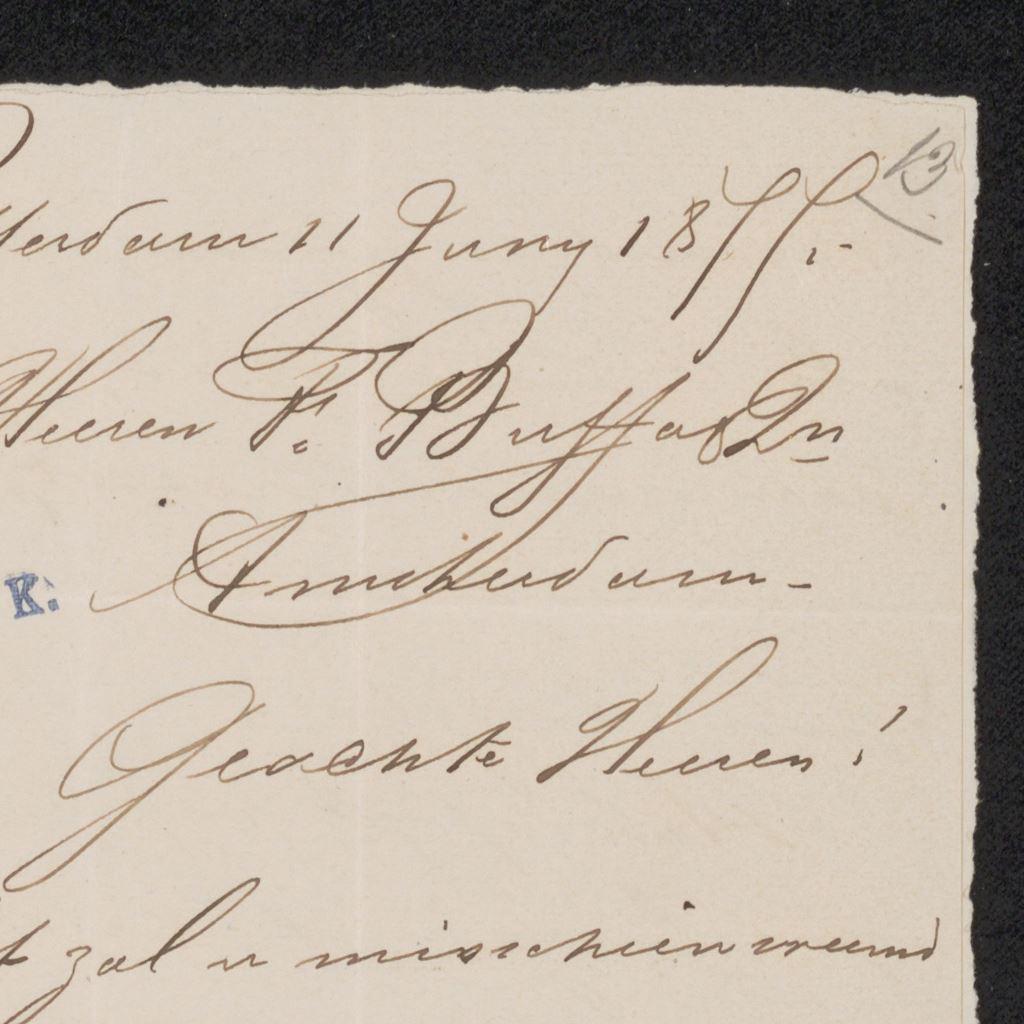 13
terdam 11 Juny 1877.-
Heeren F. Buffa & Zn
Amsterdam -
K.
Geachte Heeren!
t zal u misschien vreemd